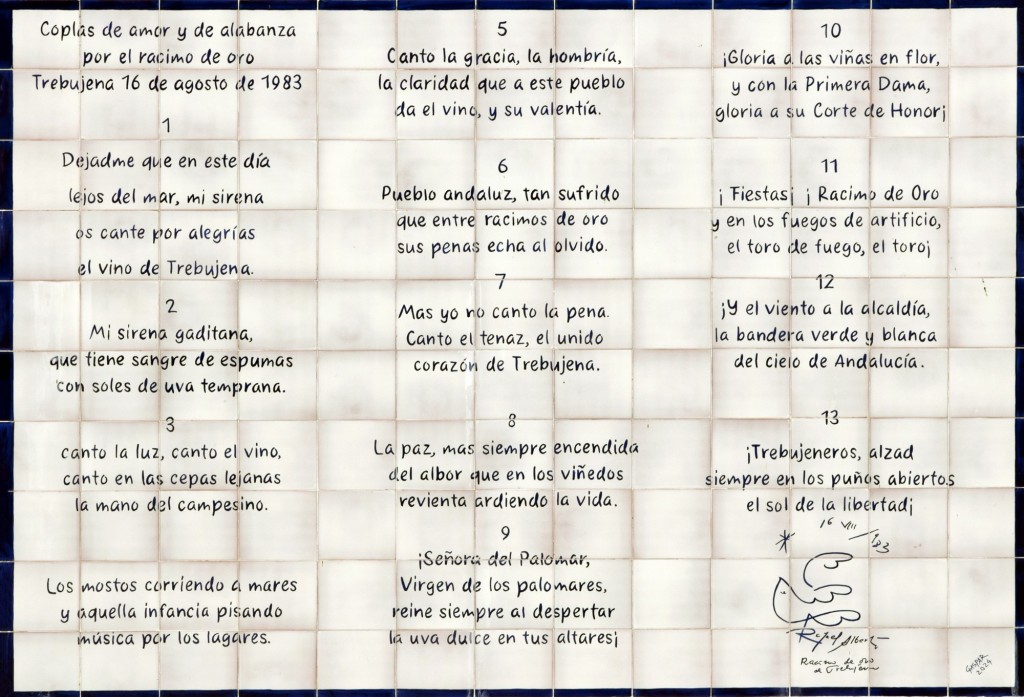 Coplas de amor y de alabanza
por el racimo de oro
Trebujena 16 de agosto de 1983
1
Dejadme que en este día
lejos del mar, mi sirena
os cante por alegrías
el vino de Trebujena.
2
Mi sirena gaditana,
que tiene sangre de espumas
con soles de uva temprana.
3
canto la luz, canto el vino,
canto en las cepas lejanas
la mano del campesino.
Los mostos corriendo a mares
y aquella infancia pisando
música por los lagares.
5
Canto la gracia, la hombría,
la claridad que a este pueblo
da el vino, y su valentía.
6
Pueblo andaluz, tan sufrido
que entre racimos de oro
sus penas echa al olvido.
7
Mas yo no canto la pena.
Canto el tenaz, el unido
corazón de Trebujena.
8
La paz, mas siempre encendida
del albor que en los viñedos
revienta ardiendo la vida.
9
¡Señora del Palomar,
Virgen de los palomares,
reine siempre al despertar
la uva dulce en tus altares¡
10
¡Gloria a las viñas en flor,
y con la Primera Dama,
gloria a su Corte de Honor¡
11
¡ Fiestas¡ ¡ Racimo de Oro
y en los fuegos de artificio,
el toro de fuego, el toro¡
12
¡Y el viento a la alcaldía,
la bandera verde y blanca
del cielo de Andalucía.
13
¡Trebujeneros, alzad
siempre en los puños abiertos
el sol de la libertad¡
16 VIII / 83
Rafael Alberti
Racimo de oro
de Trebujena
GASPAR
2024